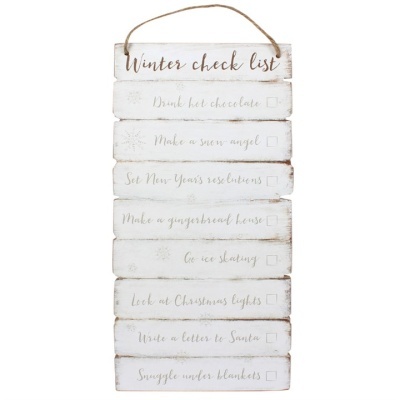 Winter check list
Drink hot chocolate
Make a snow angel
Set New Year's resolutions
Make a gingerbread house
Go ice skating
Look at Christmas lights
Write a letter to Santa
Snuggle under blankets